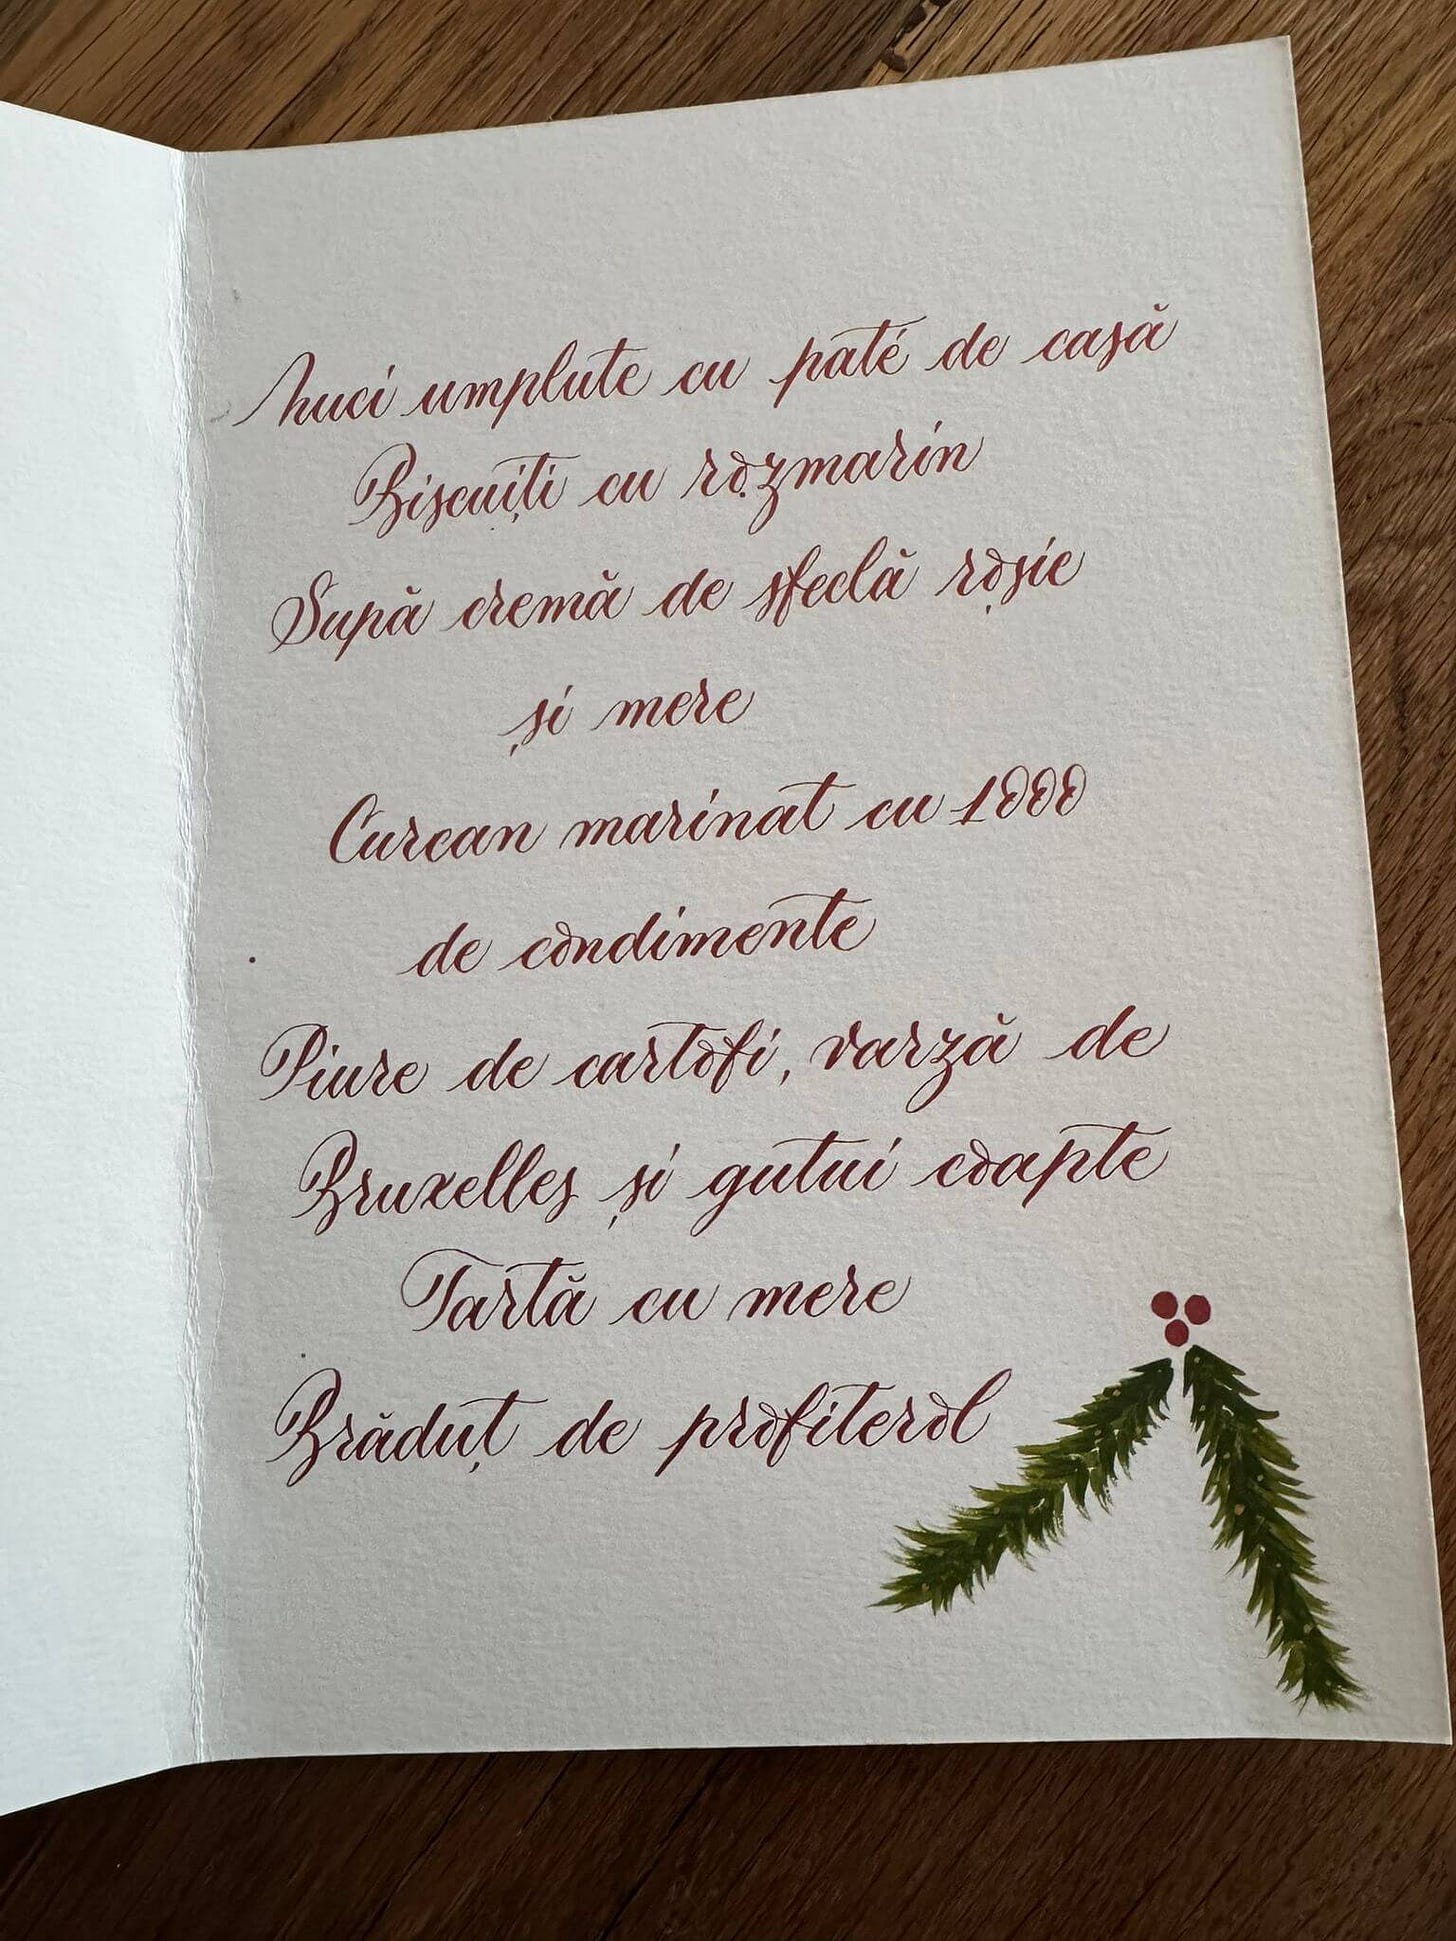 Nuci umplute cu paté de casă
Biscuiți cu rozmarin
Supă cremă de sfeclă roșie
și mere
Curcan marinat cu 1000
de condimente
Piure de cartofi, varză de
Bruxelles și gutui coapte
Tartă cu mere
Brăduț de profiterol